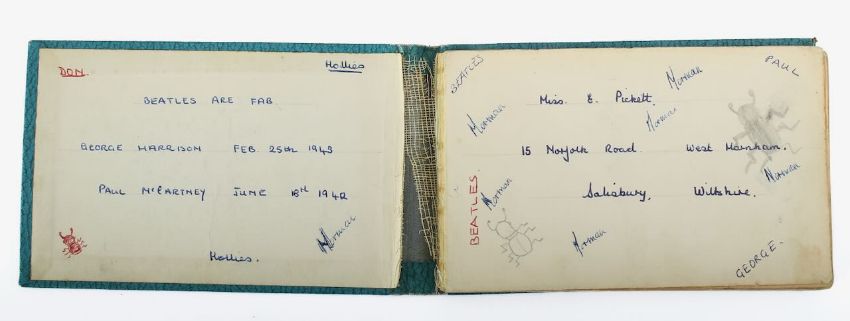 DON.
Hollies
BEATLES ARE FAB
GEORGE HARRISON FEB. 25th 1943
PAUL McCARTNEY JUNE 18th 1942
Norman
Hollies.
BEATLES
Norman
PAUL
Miss. E. Pickett.
Norman
Norman
15 Norfolk Road West Harnham.
Norman
Norman
Salisbury, Wiltshire.
BEATLES.
Norman
GEORGE.